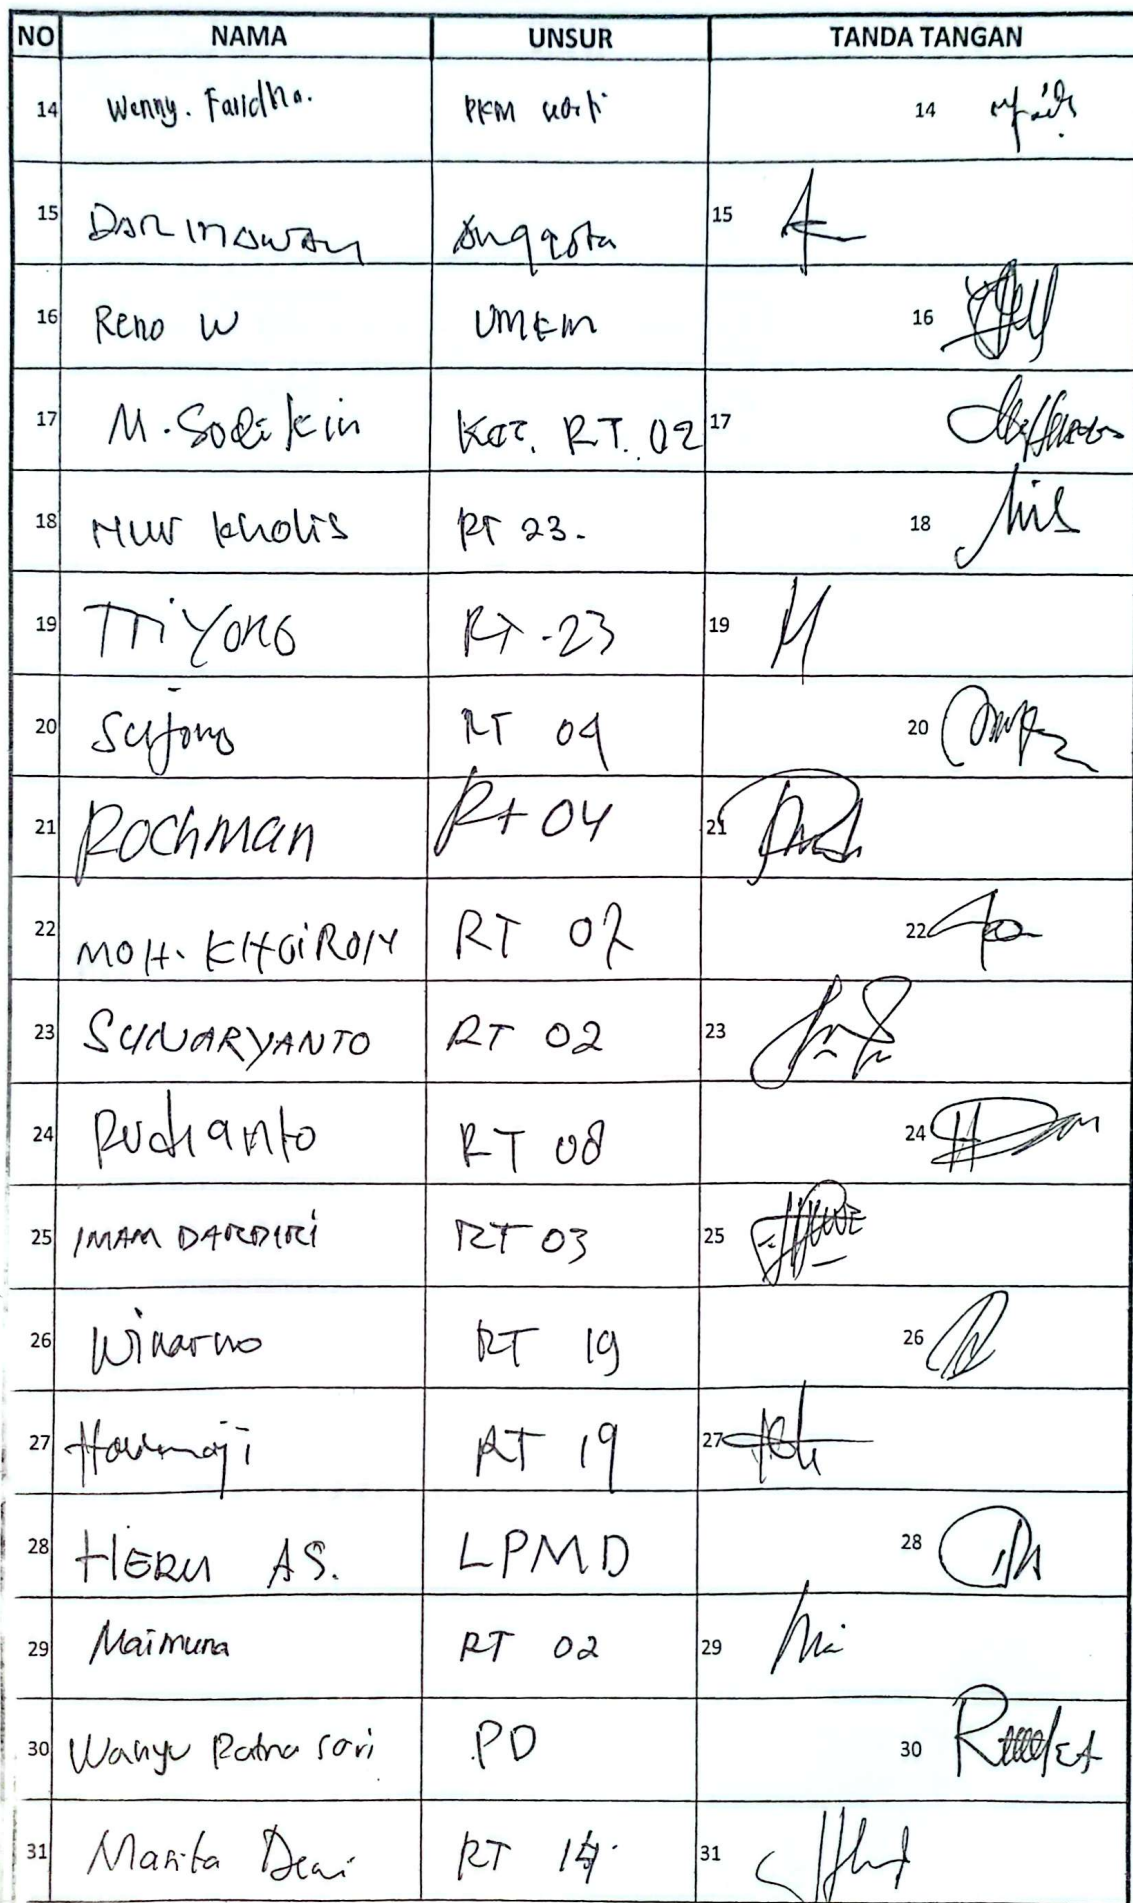 NO NAMA UNSUR TANDA TANGAN
14 Wenny. Faridha. PKM 14
15 DARMAWAN Anggota 15
16 Reno W UMKM 16
17 M. Sodikin Ket. RT. 02 17
18 Nur Kholis RT 23. 18
19 TriYONO RT-23 19
20 Sujono RT 04 20
21 Rochman Rt 04 21
22 MOH. KHOIRON RT 02 22
23 SUNARYANTO RT 02 23
24 Rudianto RT 08 24
25 IMAM DARDIRI RT 03 25
26 Winarno RT 19 26
27 RT 19 27
28 HERU AS. LPMD 28
29 Maimuna RT 02 29
30 Wahyu Ratna sari PD 30
31 Marita Dewi RT 14 31